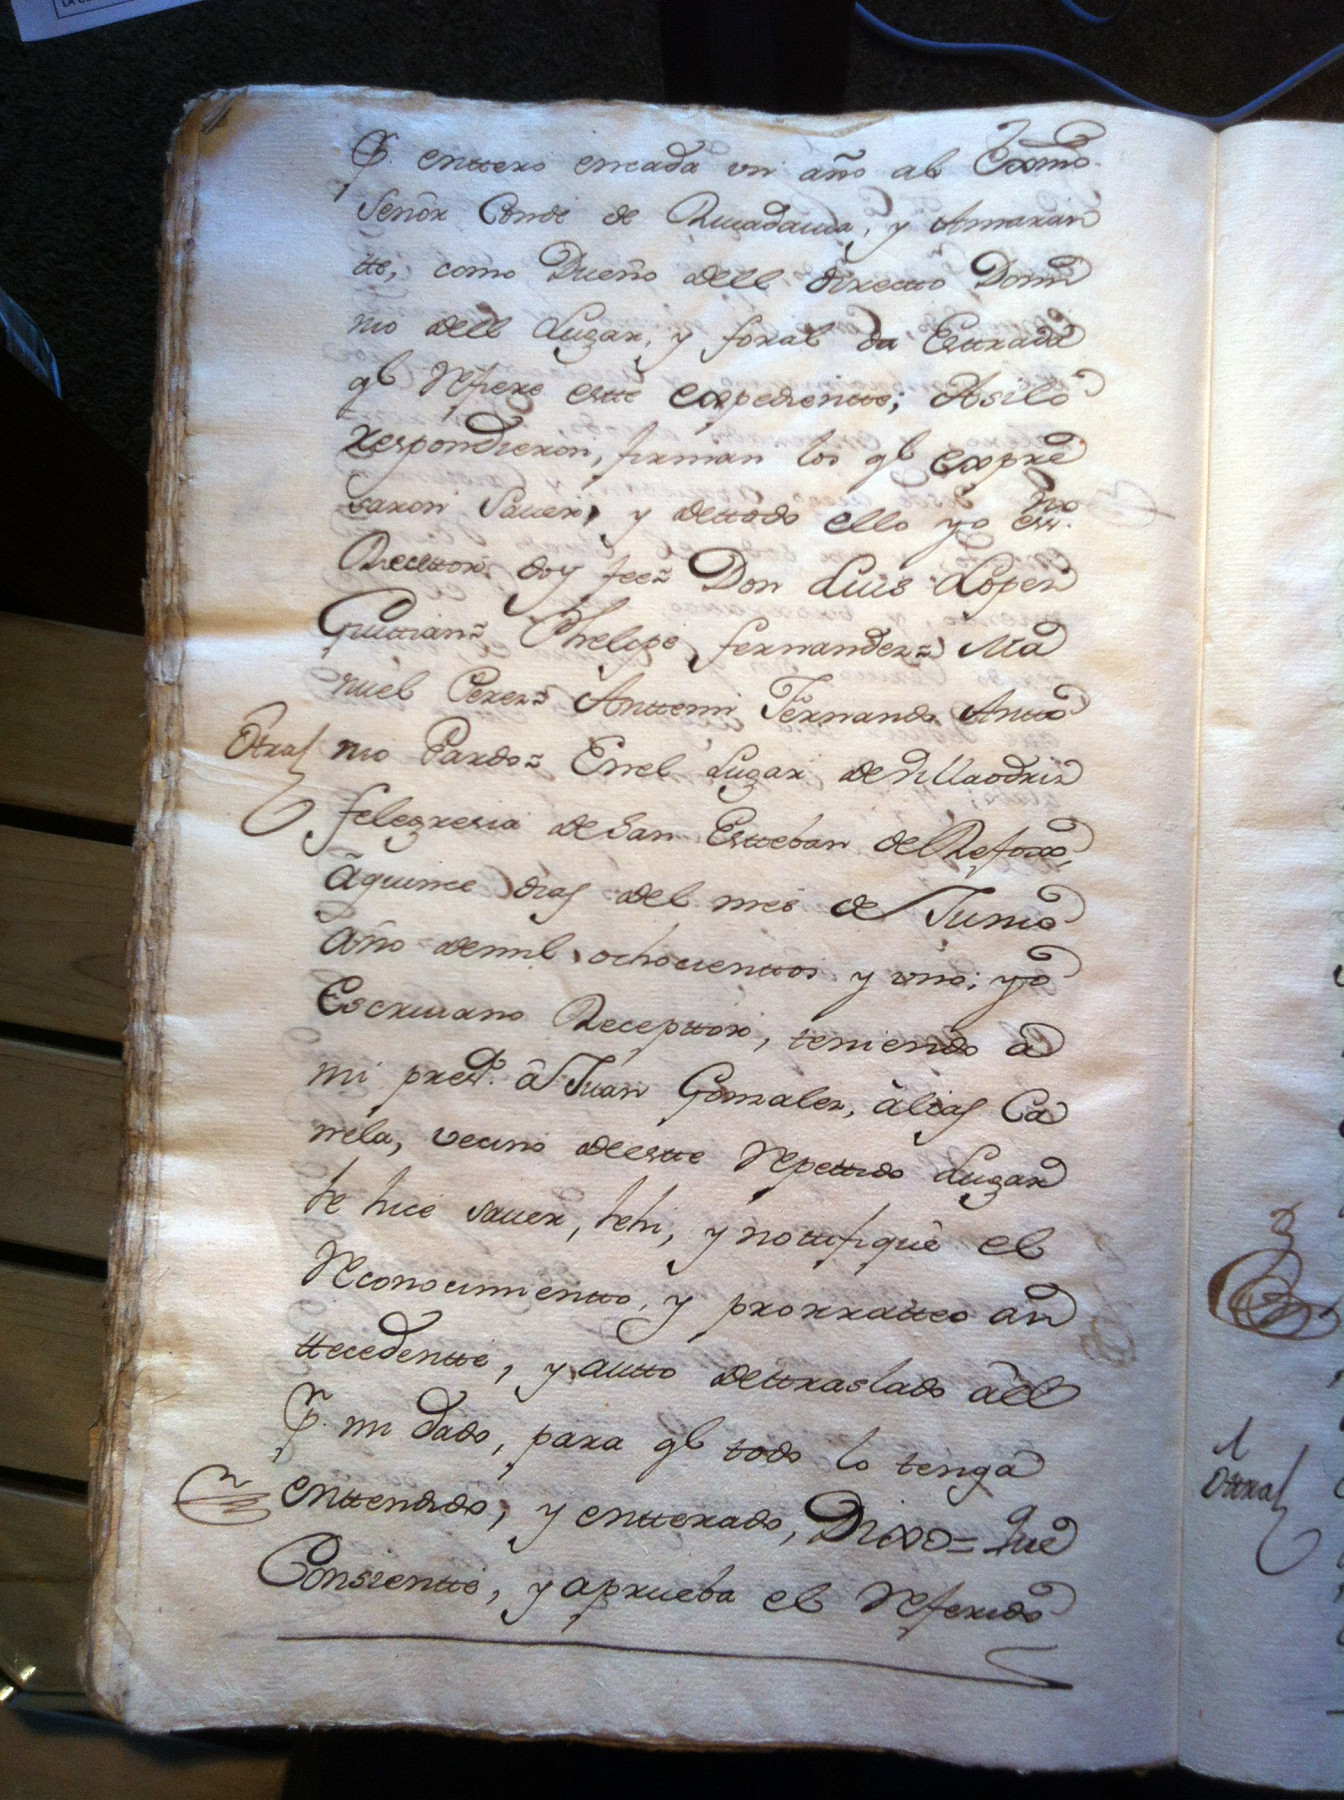 Pr. enttero encada un año al Exmo.
Señor Conde de Rivadavia, y Amaran
tte, como Dueño dell directto Domi
nio dell Lugar, y foral da Estrada
qe. Refiere estte expedientte; Asilo
respondieron, firman los qe. expre
saron Saver, y dettodo ello yo essno.
Recettor. doy fee= Don Luis Lopez
Guittian= Phelipe fernandez= Ma
nuel Perez= Anttemi Fernando Antto
Otra nio Pardo= Enel Lugar de Villaodriz
felegresia de San Esteban del Reforxo,
â quince dias del mes de Junio
año demil ochocienttos y uno; yo
Escrivano Recepttor, teniendo a
mi prest. â Juan Gonzalez, âlias Ca
nela, vecino deestte Repettido Lugar
le hice saver, lehi, y nottifiquè el
Reconocimientto, y prorratteo an
ttecedentte, y autto dettraslado âèl
Pr. mi dado, para qe. todo lo tenga
enttendido, y entterado, Dixo= Que
Consientte, y aprueba el Referido
Ottra